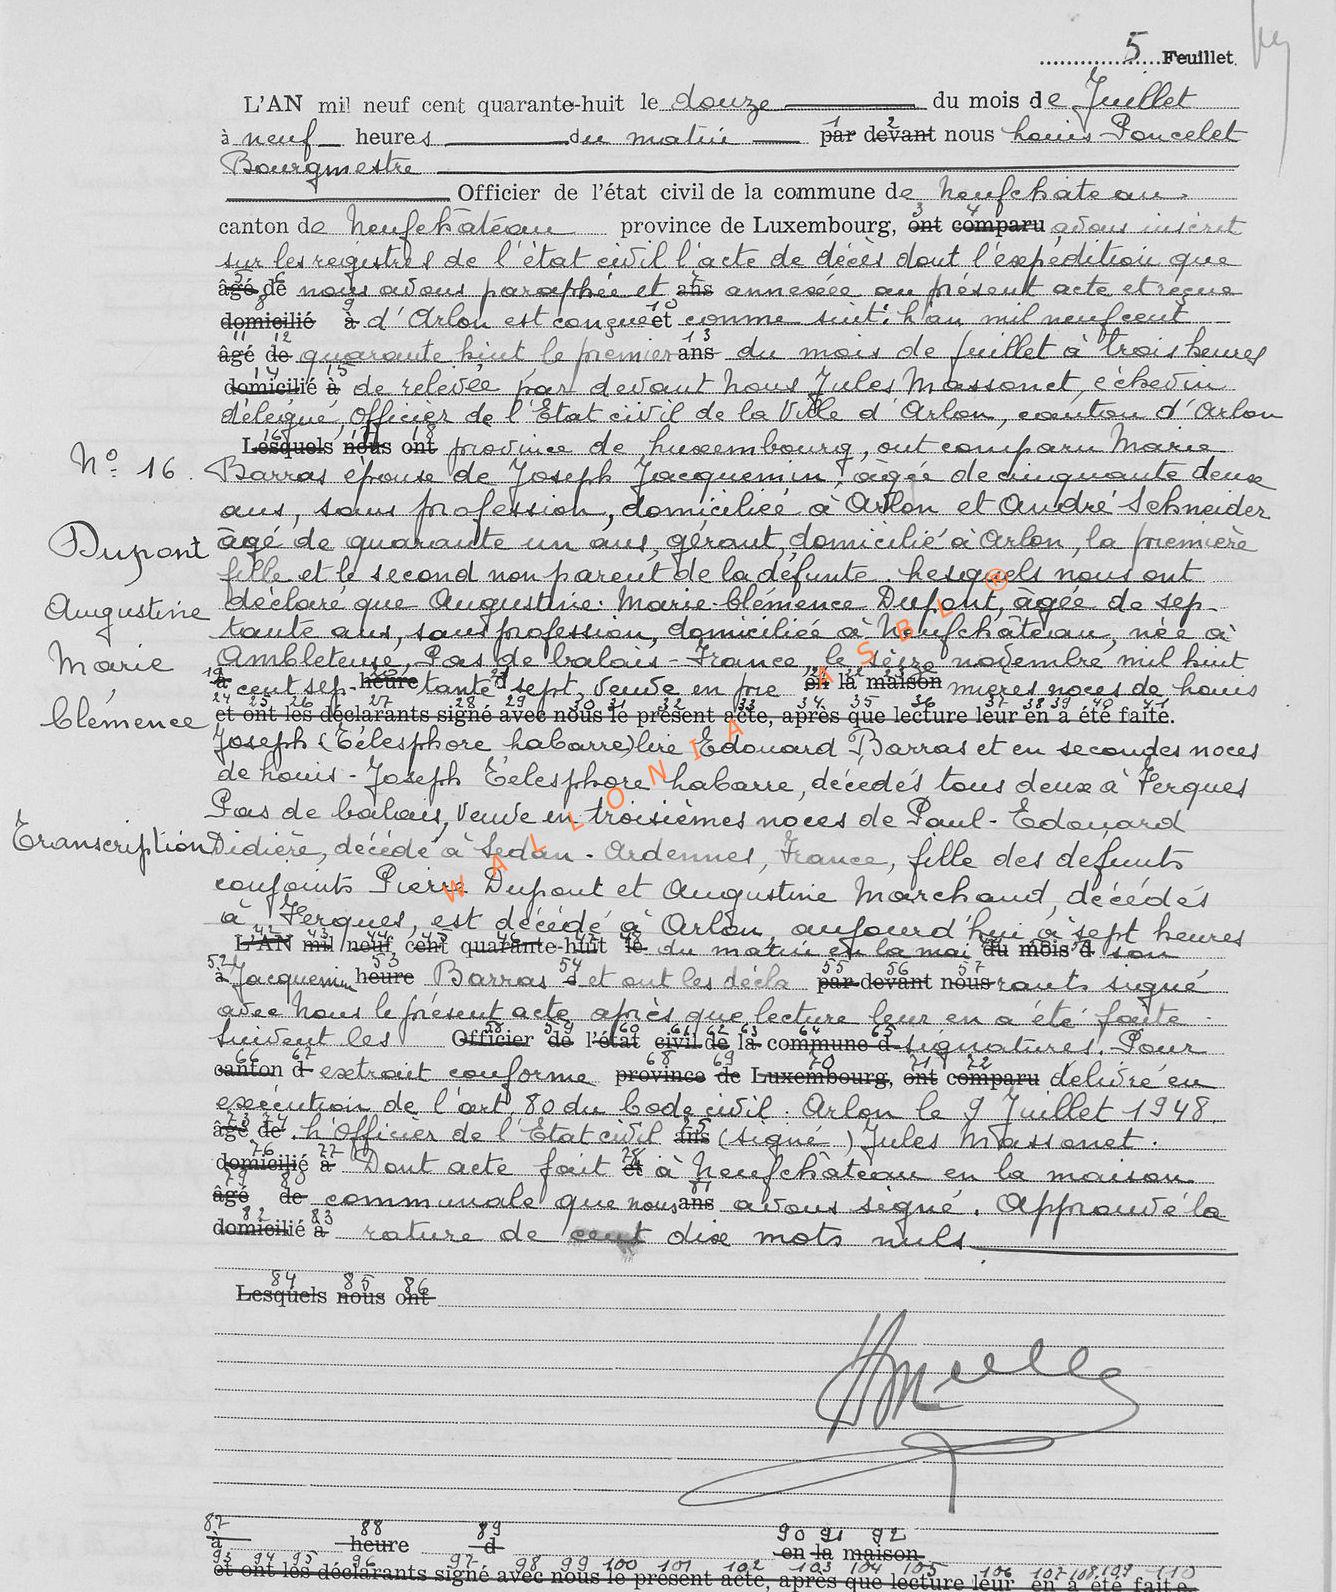 5 Feuillet.
L'AN mil neuf cent quarante-huit le douze du mois de Juillet
à neuf heures du matin par devant nous Louis Poncelet
Bourgmestre
Officier de l'état civil de la commune de Neufchâteau.
canton de Neufchâteau province de Luxembourg, ont comparu avons inscrit
sur les registres de l'état civil l'acte de décès dont l'expédition que
âgé de nous avons paraphée et ans annexée au présent acte et reçue
domicilié à d'Arlon est conçue et comme suit: L'an mil neuf cent
âgé de quarante huit le premier ans du mois de juillet à trois heures
domicilié à de relevée par devant Nous Jules Massonet, échevin
délégué, Officier de l'Etat civil de la Ville d'Arlon, canton d'Arlon
Lesquels nous ont province de Luxembourg, ont comparu Marie
N° 16. Barras épouse de Joseph Jacquemin, agée de cinquante deux
ans, sans profession, domiciliée à Arlon et André Schneider
Dupont âgé de quarante un ans, gérant, domicilié à Arlon, la première
fille et le second non parent de la défunte. Lesquels nous ont
Augustine déclaré que Augustine-Marie-Clémence Dupont, âgée de sep-
tante ans, sans profession, domiciliée à Neufchâteau, née à
Marie Ambleteuse, Pas de Calais - France, le seize novembre mil huit
à cent sep- heure tante d sept, veuve en pre en la maison mières noces de Louis
Clémence et ont les déclarants signé avec nous le présent acte, après que lecture leur en a été faite.
Joseph (Télesphore Labarre) lire Edouard Barras et en secondes noces
de Louis-Joseph Télesphore Labarre, décédés tous deux à Ferques
Pas de Calais, Veuve en troisièmes noces de Paul-Edouard
Transcription Didière, décédé à Sedan - Ardennes, France, fille des défunts
conjoints Pierre Dupont et Augustine Marchand, décédés
à Ferques, est décédé à Arlon, aujourd'hui à sept heures
L'AN mil neuf cent quarante-huit le du matin en la mai du mois d son
à Jacquemin heure Barras d et ont les décla par devant nous rants signé
avec Nous le présent acte après que lecture leur en a été faite
suivent les Officier de l'état civil de la commune d signatures. Pour
canton d extrait conforme province de Luxembourg, ont comparu délivré en
exécution de l'art. 80 du Code civil. Arlon le 9 Juillet 1948.
âgé de L'Officier de l'Etat civil ans (signé) Jules Massonet.
domicilié à Dont acte fait et à Neufchâteau en la maison
âgé de communale que nous ans avons signé. Approuvé la
domicilié à rature de cent dix mots nuls
Lesquels nous ont
à heure d en la maison
et ont les déclarants signé avec nous le présent acte, après que lecture leur en a été faite.
WALLONIA ASBL ®